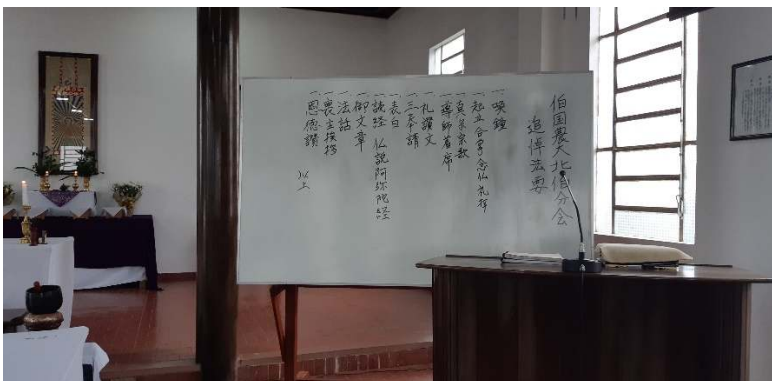 伯国農大北伯分会
追悼法要
一、喚鐘
一、起立 合掌 念仏 礼拝
一、真宗宗歌
一、導師着席
一、礼讃文
一、三奉請
一、表白
一、読経 仏説阿弥陀経
一、御文章
一、法話
一、喪主挨拶
一、恩徳讃
以上